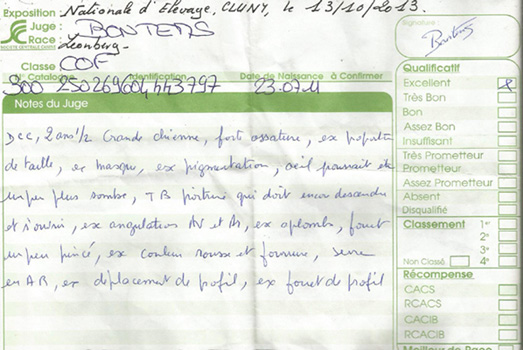 Exposition : Nationale d'Elevage, CLUNY, le 13/10/2013.
Juge : BONTEMS
Race : Leonberg
SOCIÉTÉ CENTRALE CANINE
Classe COF
N° Catalogue Identification Date de Naissance à Confirmer
300 250269604443797 23.07.11
Notes du Juge
2 ans 1/2 Grande chienne, forte ossature, ex proportion
de taille, ex masque, ex pigmentation, oeil pourrait être
un peu plus sombre, TB poitrine qui doit encore descendre
et s'ouvrir, ex angulations AV et AR, ex aplombs, fouet
un peu pincé, ex couleur rousse et fourrure, serré
en AR, ex déplacement de profil, ex fouet de profil
Signature :
Bontems
Qualificatif
Excellent X
Très Bon
Bon
Assez Bon
Insuffisant
Très Prometteur
Prometteur
Assez Prometteur
Absent
Disqualifié
Classement 1er
2e
3e
Non Classé 4e
Récompense
CACS
RCACS
CACIB
RCACIB
Meilleur de Race